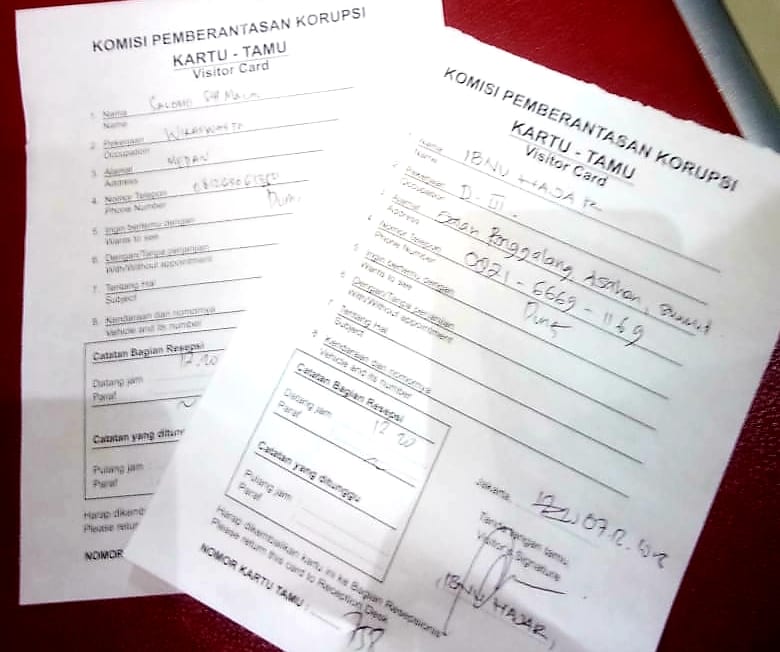 KOMISI PEMBERANTASAN KORUPSI
KARTU - TAMU
Visitor Card
1. Nama
Name
2. Pekerjaan WIRASWASTA
Occupation
3. Alamat MEDAN
Address
4. Nomor Telepon
Phone Number
5. Ingin bertemu dengan
Wants to see
6. Dengan/Tanpa perjanjian
With/Without appointment
7. Tentang Hal
Subject
8. Kendaraan dan nomornya
Vehicle and its number
Catatan Bagian Resepsi
Datang jam 12.20
Paraf
Catatan yang ditung
Pulang jam
Paraf
Harap dikemb
Please retur
NOMOR
KOMISI PEMBERANTASAN KORUPSI
KARTU - TAMU
Visitor Card
1. Nama IBNU HAJAR
Name
2. Pekerjaan D-III.
Occupation
3. Alamat Asahan, Sumut
Address
4. Nomor Telepon 0821-6669-1169
Phone Number
5. Ingin bertemu dengan
Wants to see
6. Dengan/Tanpa perjanjian
With/Without appointment
7. Tentang Hal
Subject
8. Kendaraan dan nomornya
Vehicle and its number
Catatan Bagian Resepsi
Datang jam 12 20
Paraf
Catatan yang ditunggu
Pulang jam
Paraf
Harap dikembalikan kartu ini ke Bagian Resepsionis
Please return this card to Reception Desk
NOMOR KARTU TAMU :
Jakarta,
Tanda tangan tamu
Visitor's Signature
IBNU HAJAR